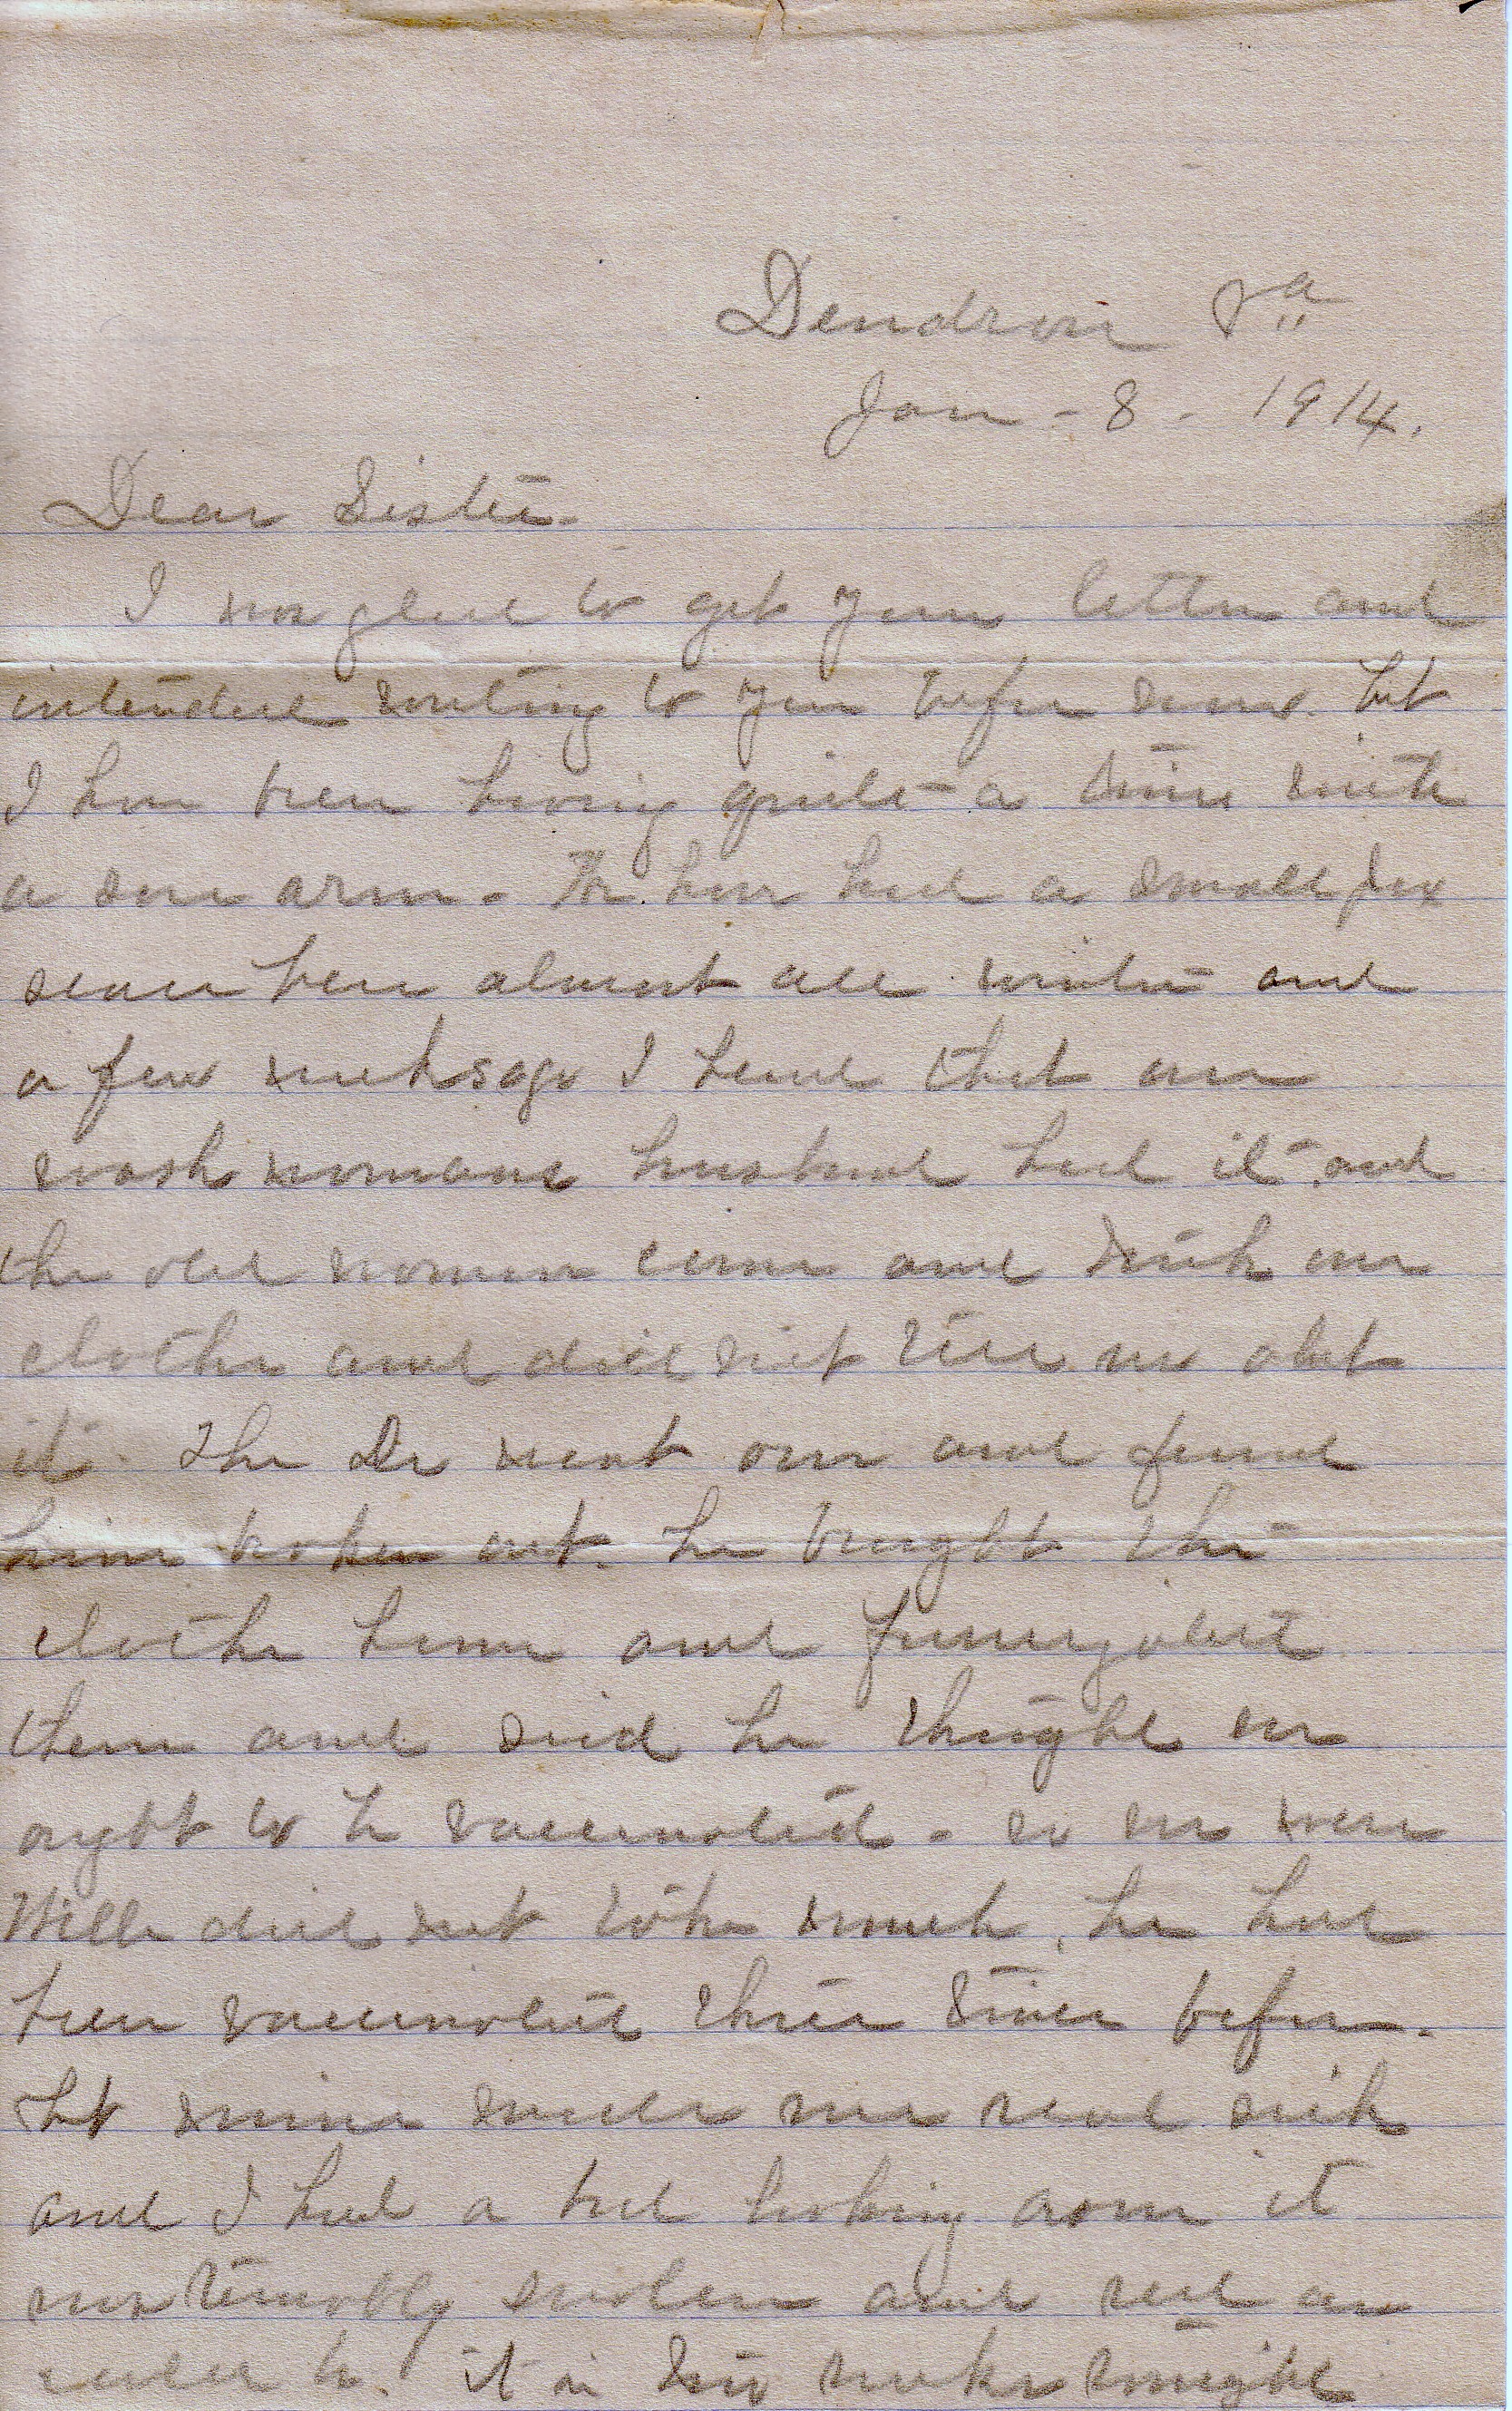 Dendron Va
Jan - 8 - 1914.
Dear Sister.
I was glad to get your letter and
intended writing to you before now. but
I have been having quite a time with
a sore arm. We have had a small pox
scare here almost all winter and
a few weeks ago I heard that our
wash womans husband had it and
the old woman came and took our
clothes and did not tell us abut
it. The Dr went over and found
him broken out. he brought the
clothes home and fumigated
them and said he thought we
ought to be vaccinated - so we were
Willie did not take much, he had
been vaccinated three times before.
but mine made me real sick
and I had a bad looking arm it
was terribly swolen and red as
could be. it is two weeks tonight